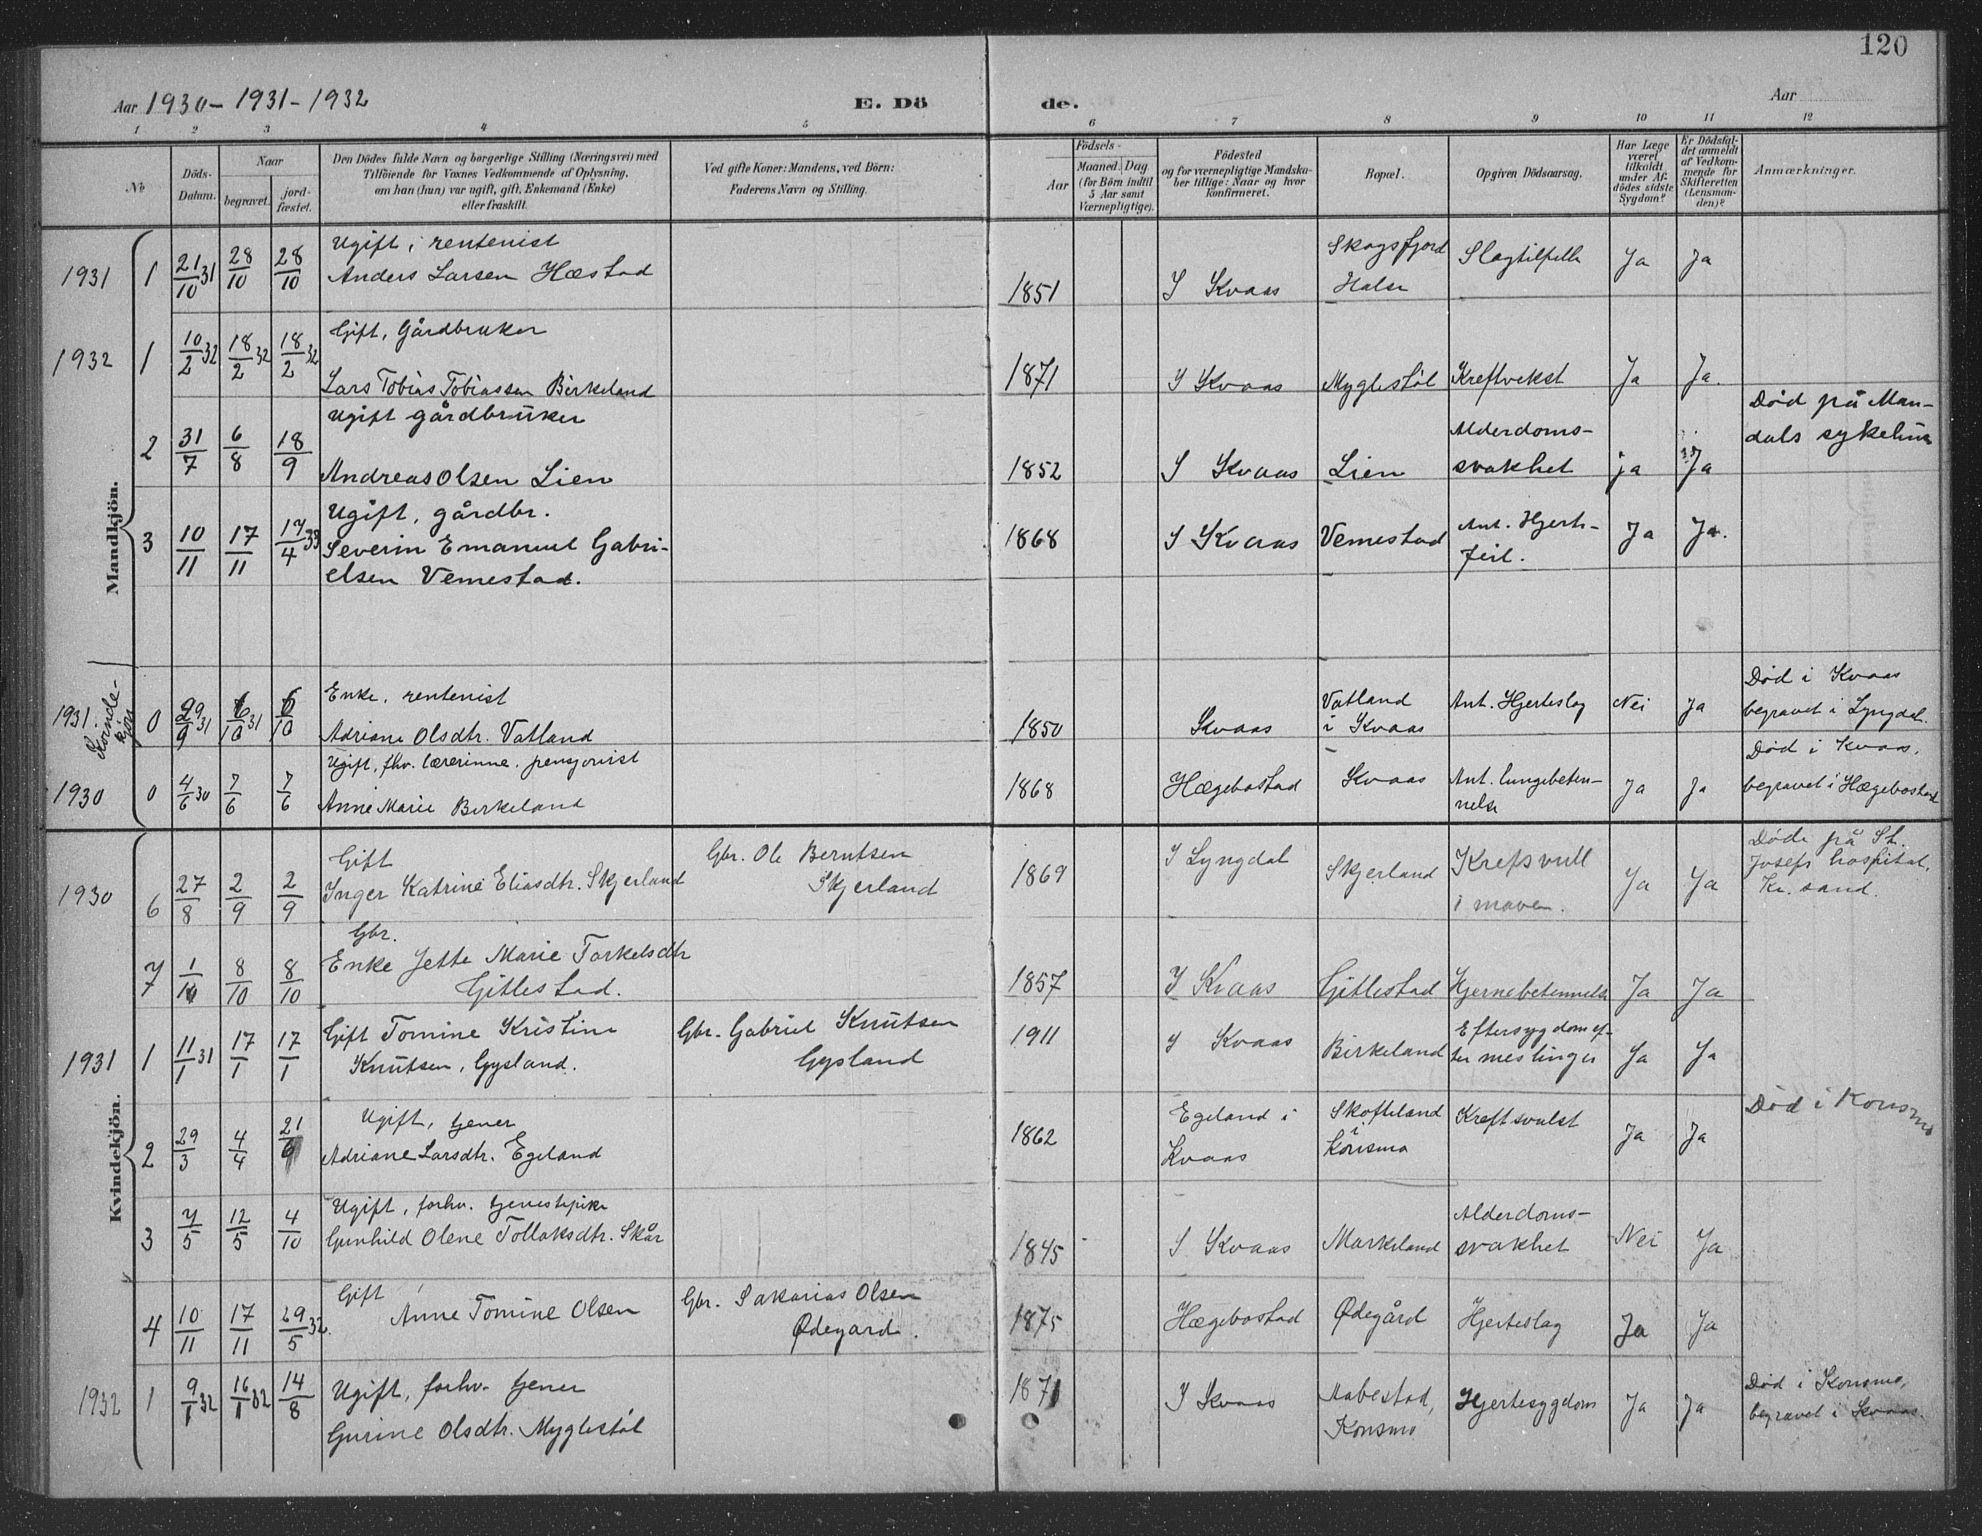 120
Aar 1930 - 1931 - 1932
E. Dö
de.
Aar
1 2 3 4 5 6 7 8 9 10 11 12
No
Döds-
Datum.
Naar
begravet.
jord-
fæstet.
Den Dödes fulde Navn og borgerlige Stilling (Næringsvei) med
Tilföiende for Voxnes Vedkommende af Oplysning,
om han (hun) var ugift, gift, Enkemand (Enke)
eller fraskilt.
Ved gifte Koner: Mandens, ved Börn:
Faderens Navn og Stilling.
Födsels-
Aar
Maaned. Dag
(for Börn indtil
5 Aar samt
Værnepligtige).
Födested
og for værnepligtige Mandska-
ber tillige: Naar og hvor
konfirmeret.
Bopæl.
Opgiven Dödsaarsag.
Har Læge
været
tilkaldt
under Af-
dödes sidste
Sygdom?
Er Dödsfal-
det anmeldt
af Vedkom-
mende for
Skifteretten
(Lensman-
den)?
Anmærkninger.
Mandkjön.
1931 1 21/10 31 28/10 28/10 Ugift, rentenist
Anders Larsen Hæstad
1851 I Kvaas Skogsfjord
Halse
Slagtilfelle Ja Ja
1932 1 10/2 32 18/2 32 18/2 32 Gift, Gårdbruker
Lars Tobias Tobiassen Birkeland
1871 I Kvaas Myglestöl Kreftvekst Ja Ja.
2 31/7 6/8 18/9 Ugift gårdbruker
Andreas Olsen Lien
1852 I Kvaas Lien Alderdoms-
svakhet ja Ja
Död på Man-
dals sykehus
3 10/11 17/11 17/4 33 Ugift, gårdbr.
Severin Emanuel Gabri-
elsen Vemestad.
1868 I Kvaas Vemestad Ant. Hjerte-
feil. Ja Ja.
Kvinde-
kjön
1931. 0 29/9 31 6/10 31 6/10 Enke, rentenist
Adriane Olsdtr. Vatland
1850 Kvaas Vatland
i Kvaas
Ant. Hjerteslag Nei Ja
Död i Kvaas
begravet i Lyngdal.
1930 0 4/6 30 7/6 7/6 Ugift, fhv. lærerinne, pensjonist
Anne Marie Birkeland
1868 Hægebostad Kvaas Ant. lungebeten-
nelse Ja Ja
Död i Kvaas,
begravet i Hægebostad
Kvindekjön.
1930 6 27/8 2/9 2/9 Gift
Inger Katrine Eliasdtr. Skjerland
Gbr. Ole Berntsen
Skjerland
1869 I Lyngdal Skjerland
i maven. Ja Ja
Döde på St.
Josefs hospital,
Kr. sand.
7 1/10 8/10 8/10 Gbr.
Enke Jette Marie Torkelsdtr
Gitlestad.
1857 I Kvaas Gitlestad Hjernebetennelse Ja Ja
1931 1 11/1 31 17/1 17/1 Gift Tomine Kristine
Knutsen, Gysland.
Gbr. Gabriel Knutsen
Gysland
1911 I Kvaas Birkeland Eftersygdom ef-
ter meslinger Ja Ja
2 29/3 4/4 21/6 Ugift, tjener
Adriane Larsdtr. Egeland
1862 Egeland i
Kvaas
Skofteland
i
Konsmo
Kreftsvulst Ja Ja
Död i Konsmo
3 7/5 12/5 4/10 Ugift, forhv. tjenestepike
Gunhild Olene Tollaksdtr. Skår
1845 I Kvaas Markeland Alderdoms-
svakhet Nei Ja
4 10/11 17/11 29/5 32. Gift
Anne Tomine Olsen
Gbr. Sakarias Olsen
Ødegard.
1875 Hægebostad Ødegård Hjerteslag Ja Ja
1932 1 9/1 32 16/1 32 14/8 Ugift, forhv. tjener
Gurine Olsdtr. Myglestöl
1871 I Kvaas
Konsmo
Hjertesygdom Ja Ja
Död i Konsmo,
begravet i Kvaas.